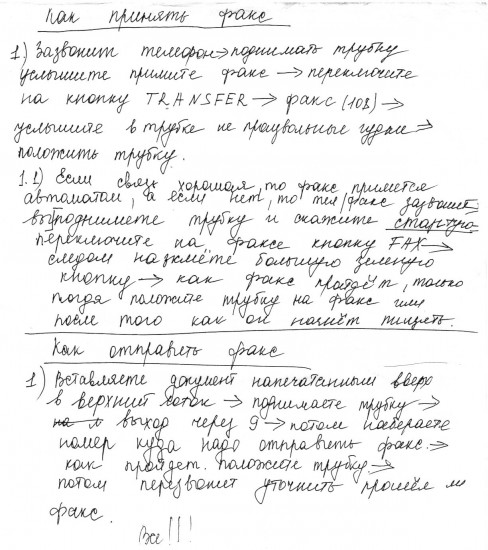 Как принять факс
1) Зазвонит телефон → поднимать трубку
услышите примите факс → переключите
на кнопку TRANSFER → факс (108) →
услышите в трубке не прозвольные гудки →
положить трубку.
1.1) Если связь хорошая, то факс примется
автоматом, а если нет, то тел/факс зазвонит
вы поднимете трубку и скажите стартую
переключите на факсе кнопку FAX →
следом нажмёте большую зеленую
кнопку → как факс пройдёт, только
тогда положите трубку на факс или
после того как он начнёт пищать.
Как отправить факс
1) Вставляете документ напечатанным вверх
в верхний лоток → поднимаете трубку →
выход через 9 → потом набераете
номер куда надо отправить факс. →
как пройдет. положите трубку →
потом перезвонит уточнить прошёл ли
факс.
Все!!!